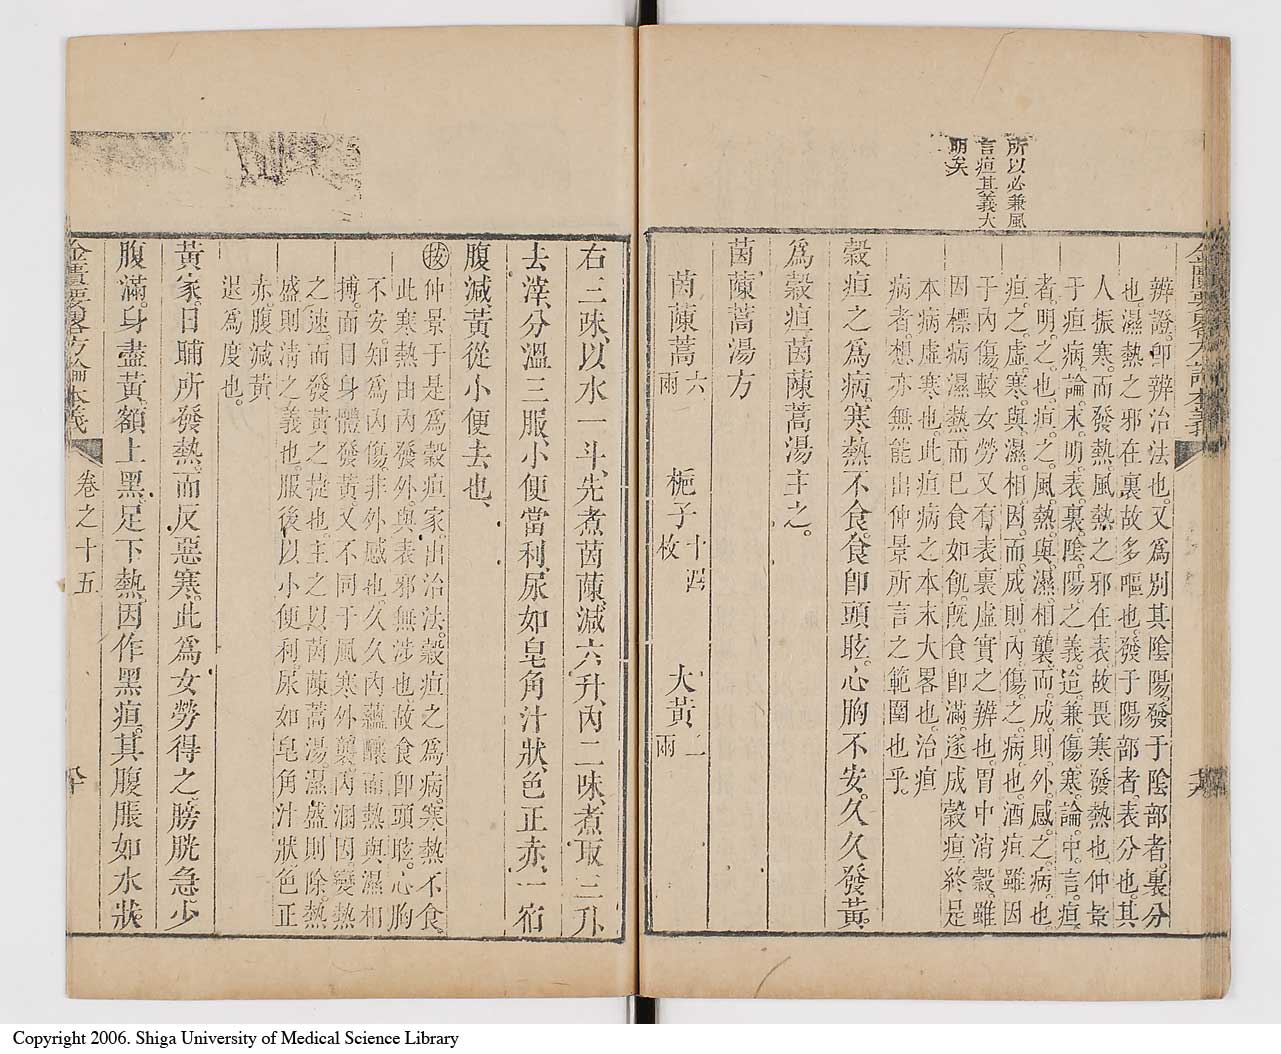 所以必兼風
言疸其義大
明矣
辨證卽辨治法也又爲別其陰陽發于陰部者裏分
也濕熱之邪在裏故多嘔也發于陽部者表分也其
人振寒而發熱風熱之邪在表故畏寒發熱也仲景
于疸病論末明表裏陰陽之義迨兼傷寒論中言疸
者明之也疸之風熱與濕相襲而成則外感之病也
疸之虛寒與濕相因而成則內傷之病也酒疸雖因
于內傷較女勞又有表裏虛實之辨也胃中消穀雖
因標病濕熱而已食如飢旣食卽滿遂成穀疸終是
本病虛寒也此疸病之本末大畧也治疸
病者想亦無能出仲景所言之範圍也乎
穀疸之爲病寒熱不食食卽頭眩心胸不安久久發黃
爲穀疸茵蔯蒿湯主之
茵蔯蒿湯方
茵蔯蒿六兩 梔子十四枚 大黃二兩
右三味以水一斗先煮茵蔯減六升內二味煮取三升
去滓分溫三服小便當利尿如皂角汁狀色正赤一宿
腹減黃從小便去也
按仲景于是爲穀疸家出治法穀疸之爲病寒熱不食
此寒熱由內發外與表邪無涉也故食卽頭眩心胸
不安知爲內傷非外感也久久內蘊釀而熱與濕相
搏而目身體發黃又不同于風寒外襲內涸因變熱
之速而發黃之捷也主之以茵蔯蒿湯濕盛則除熱
盛則清之義也服後以小便利尿如皂角汁狀色正
赤腹減黃
退爲度也
黃家日晡所發熱而反惡寒此爲女勞得之膀胱急少
腹滿身盡黃額上黑足下熱因作黑疸其腹脹如水狀
金匱要畧方論本義 卷之十五
Copyright 2006. Shiga University of Medical Science Library